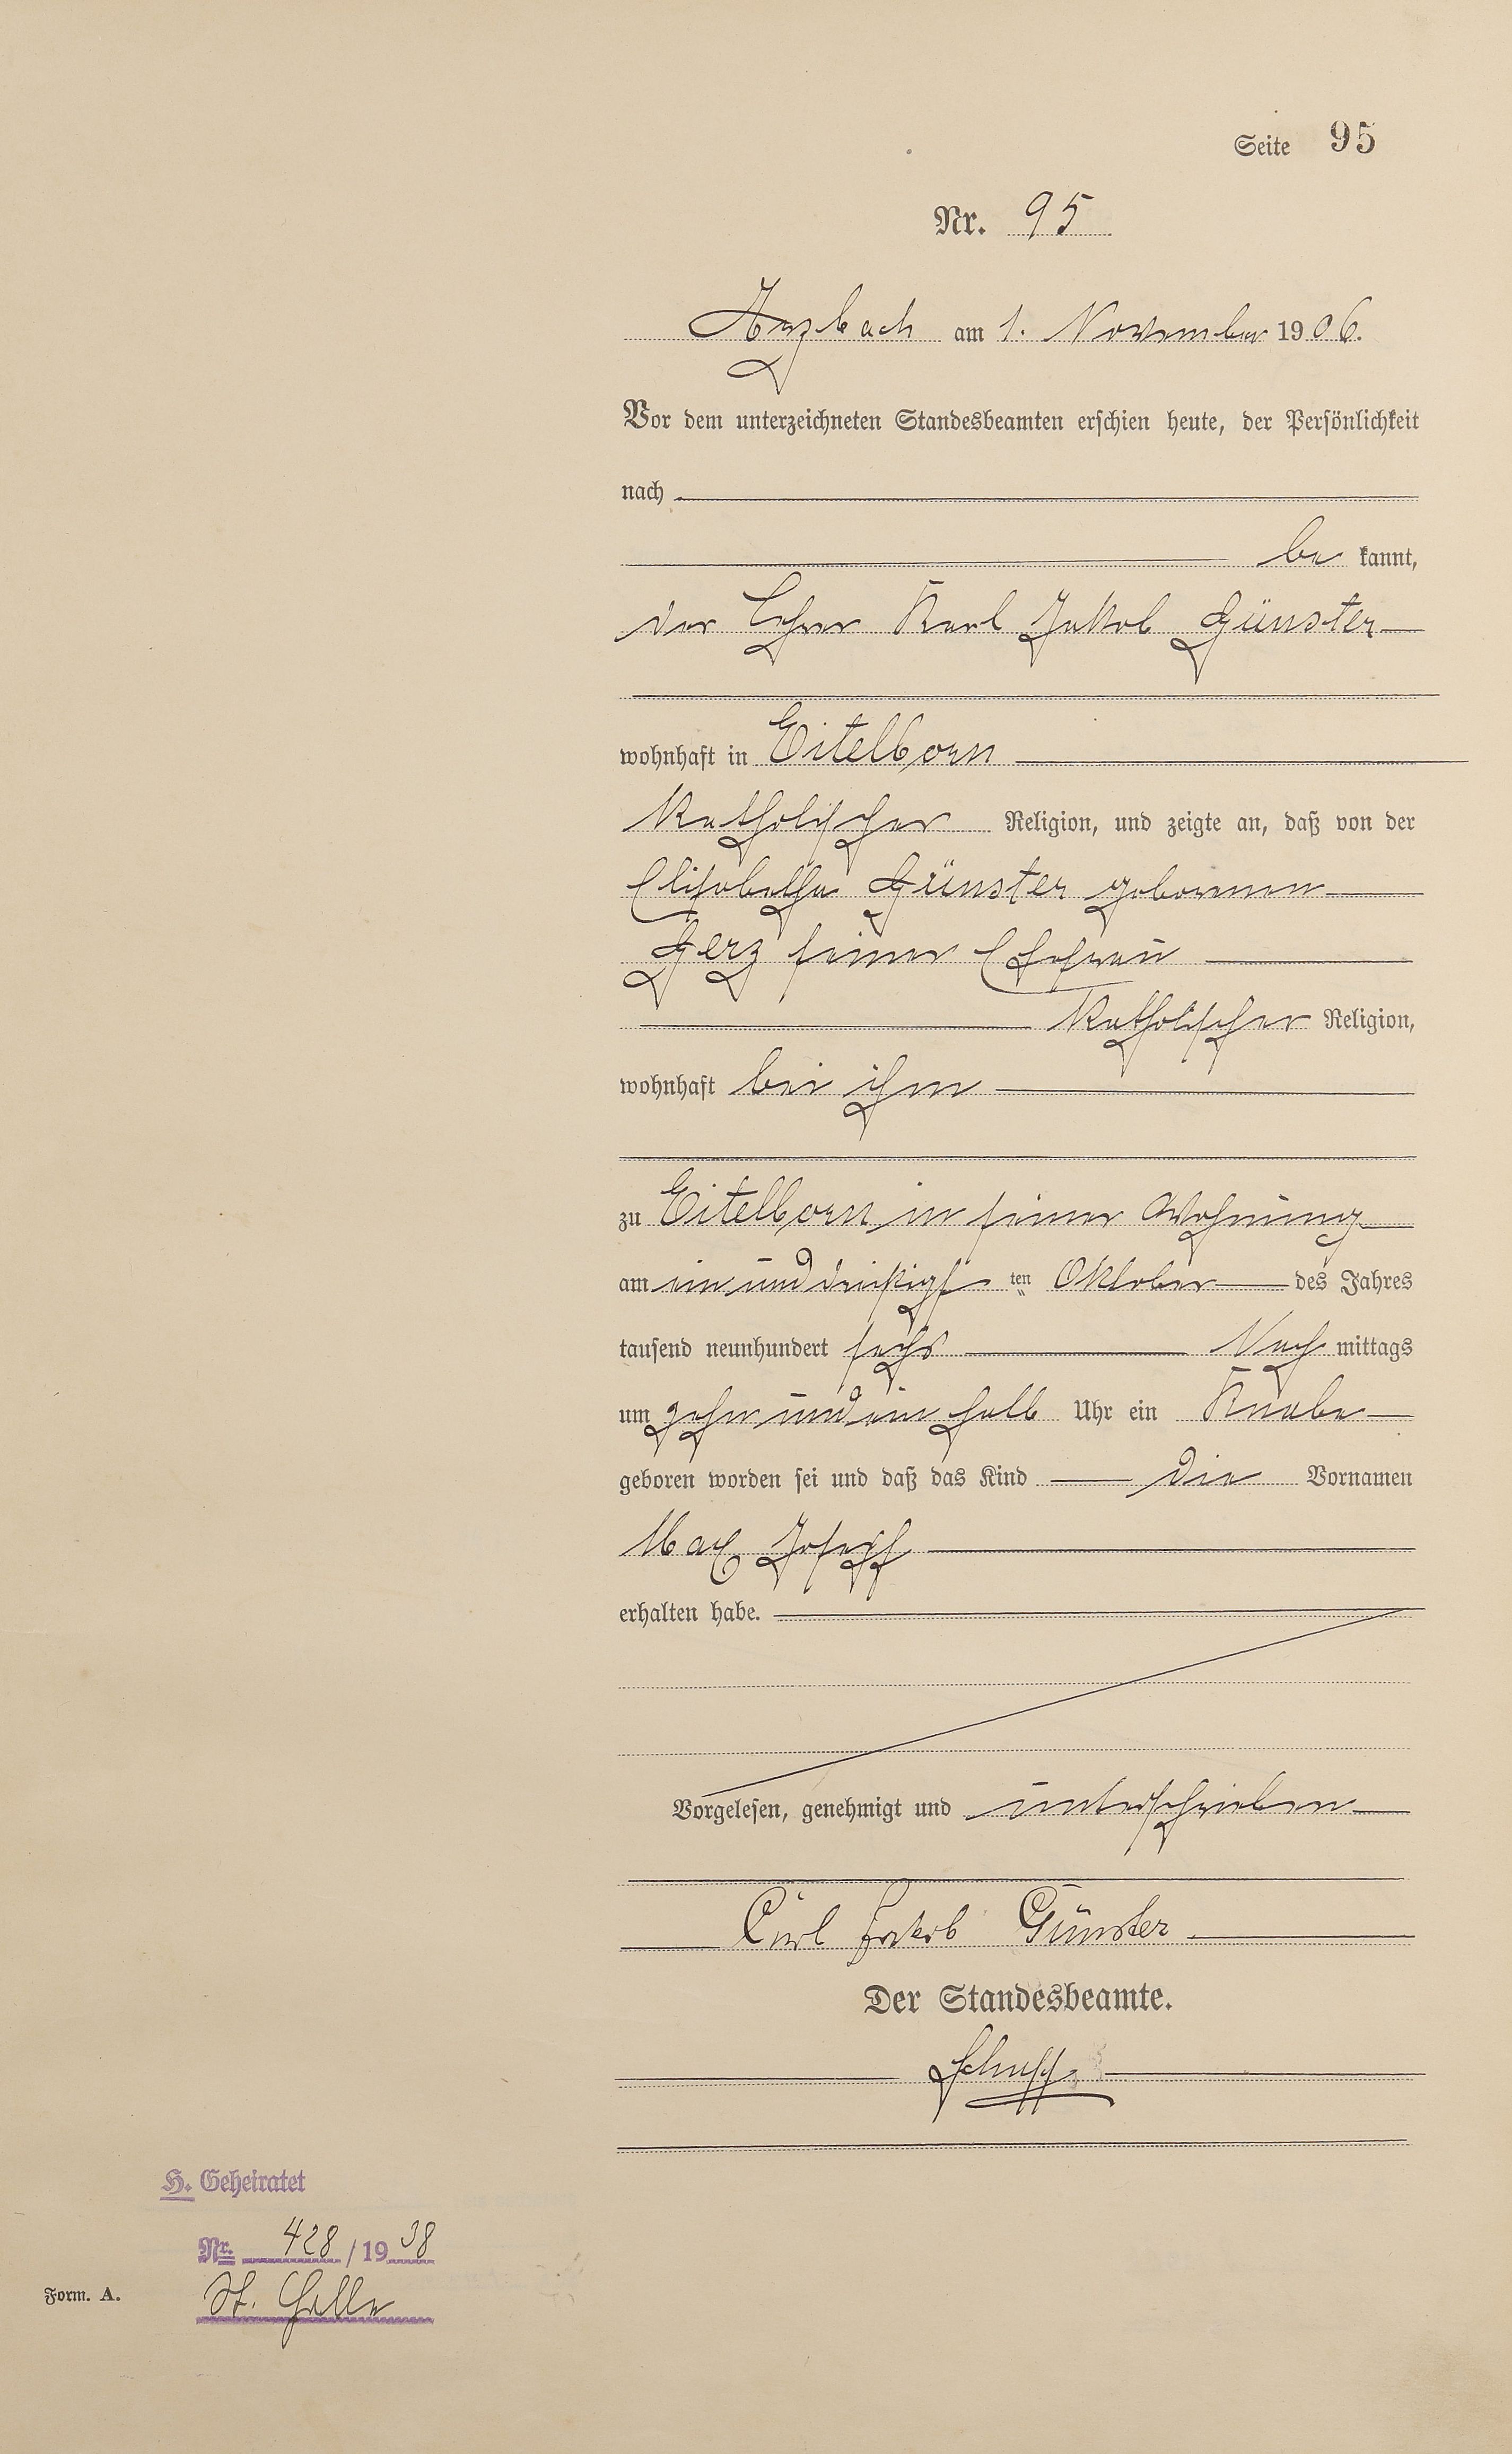 Seite 95
Nr. 95
Arzbach am 1. November 1906.
Vor dem unterzeichneten Standesbeamten erschien heute, der Persönlichkeit
nach
be kannt,
der Lehrer Karl Jakob Günster
wohnhaft in Eitelborn
katholischer Religion, und zeigte an, daß von der
Elisabetha Günster geborenen
Gerz seiner Ehefrau
katholischer Religion,
wohnhaft bei ihm
zu Eitelborn in seiner Wohnung
am ein und dreißigsten Oktober des Jahres
tausend neunhundert sechs Nach mittags
um zehn und ein halb Uhr ein Knabe
geboren worden sei und daß das Kind die Vornamen
Max Joseph
erhalten habe.
Vorgelesen, genehmigt und unterschrieben
Carl Jakob Günster
Der Standesbeamte.
H. Geheiratet
Nr. 428/1938
Form. A. St. Halle